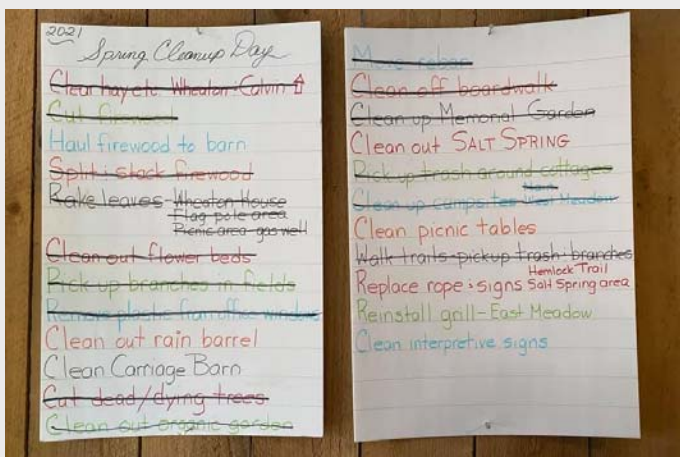 2021
Spring Cleanup Day
Clear hay etc Wheaton : Calvin ⇧
Cut firewood
Haul firewood to barn
Split : stack firewood
Rake leaves - Wheaton House
Flag pole area
Picnic area - gas well
Clean out flower beds
Pick up branches in fields
Remove plastic from office window
Clean out rain barrel
Clean Carriage Barn
Cut dead/dying trees
Clean out organic garden
Move rebar
Clean off boardwalk
Clean up Memorial Garden
Clean out SALT SPRING
Pick up trash around cottages
Clean up campsites West Meadow
Clean picnic tables
Walk trails - pickup trash : branches
Hemlock Trail
Replace rope : signs Salt Spring area
Reinstall grill - East Meadow
Clean interpretive signs